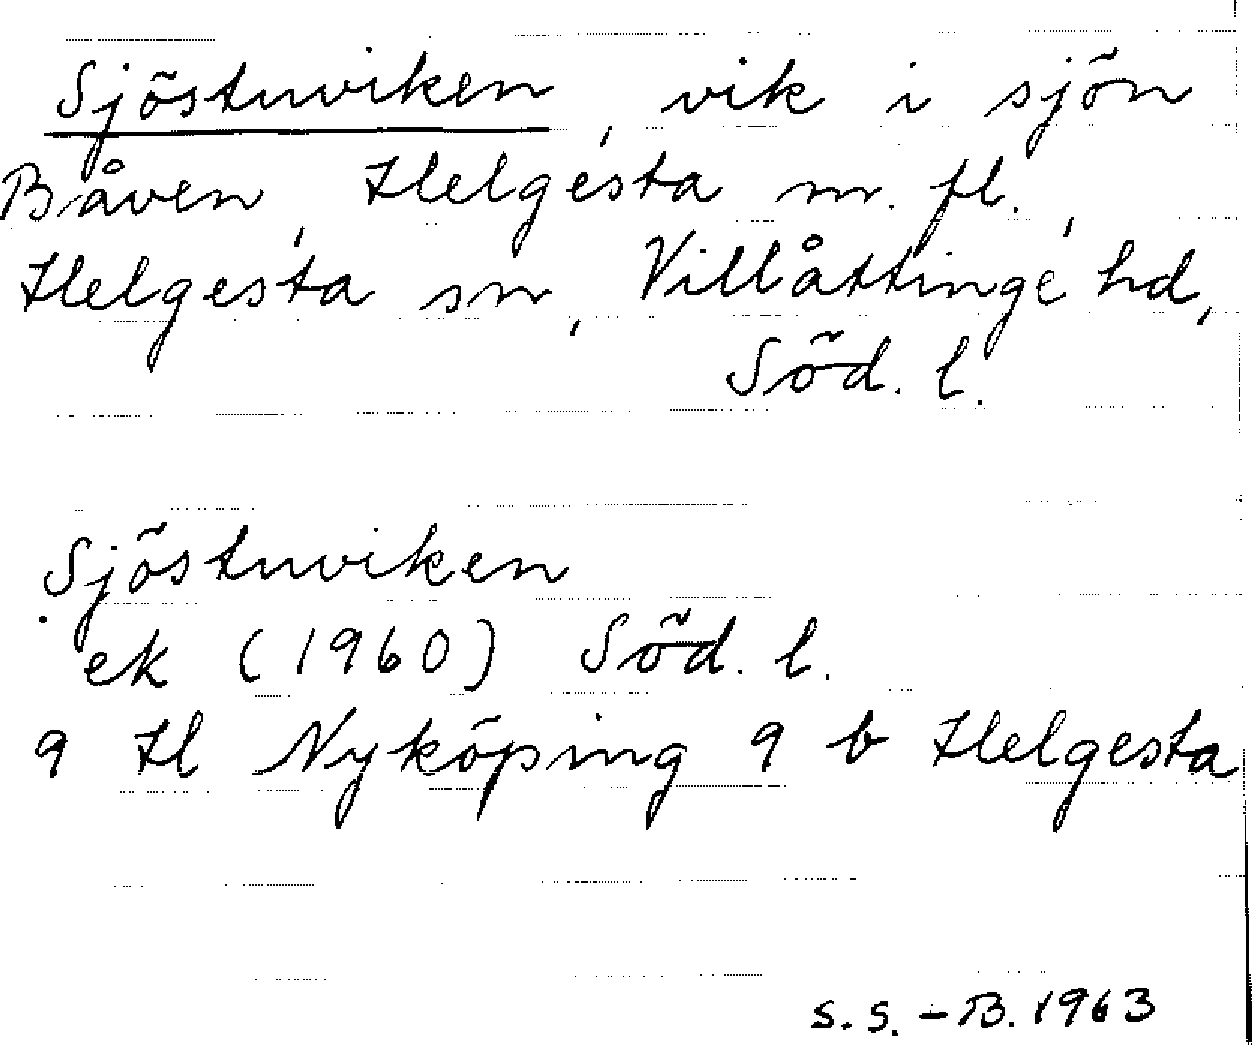 Sjöstuviken, vik i sjön
Båven, Helgesta m. fl.,
Helgesta sn, Villåttinge hd,
Söd. l.
Sjöstuviken
ek (1960) Söd. l.
9 H Nyköping 9 b Helgesta
S.S.-B. 1963